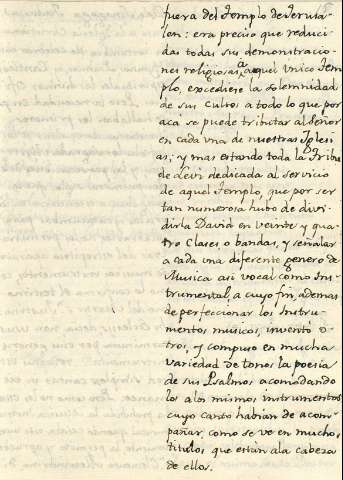 fuera del Templo de Jerusa-
len: era preciso que reduci-
das todas sus demonstracio-
nes religiosas, a aquel unico Tem
plo, excediese la solemnidad
de sus cultos a todo lo que por
acá se puede tributar al Señor
en cada una de nuestras Igles-
ias; y mas estando toda la Tribu
de Levi dedicada al servicio
de aquel Templo, que por ser
tan numerosa hubo de divi-
dirla David en veinte y qua-
tro Clases, o bandas, y señalar
a cada una diferente genero de
Musica asi vocal como Ins-
trumental, a cuyo fin, ademas
de perfeccionar los Instru-
mentos musicos, inventó o-
tros, y compuso en mucha
variedad de tonos la poesia
de sus Psalmos acomodando
los a los mismos instrumentos
cuyo canto habian de acom-
pañar, como se ve en muchos
titulos que están ala cabeza
de ellos.